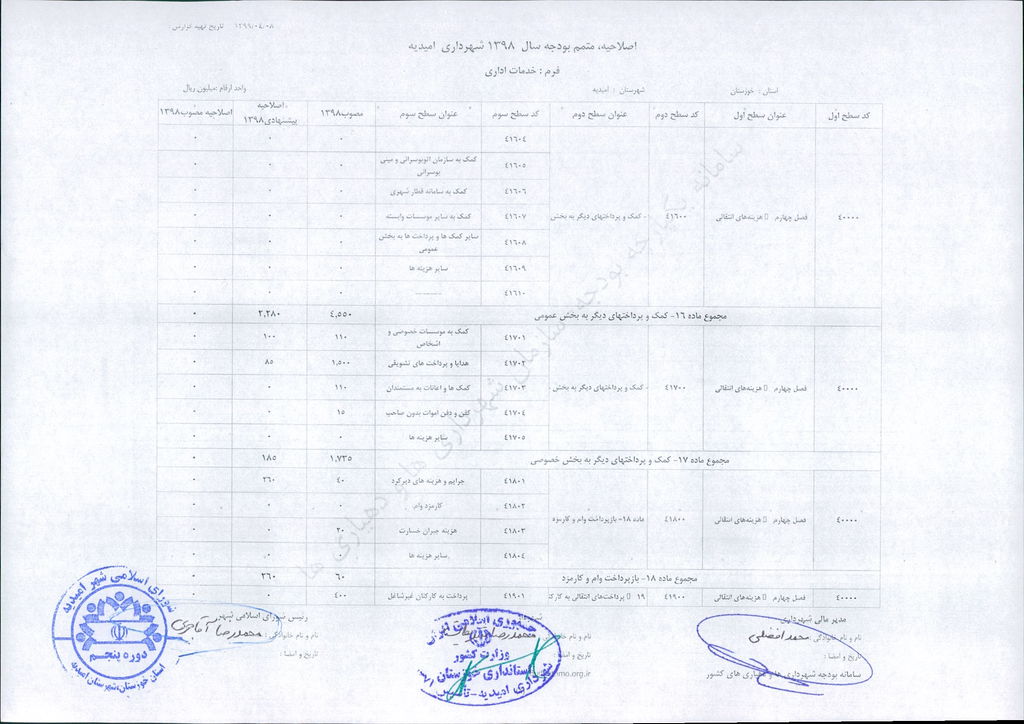 تاریخ تهیه گزارش : ۱۳۹۹/۰۴/۰۸
اصلاحیه، متمم بودجه سال ۱۳۹۸ شهرداری امیدیه
فرم : خدمات اداری
استان : خوزستان شهرستان : امیدیه واحد ارقام :میلیون ریال
کد سطح اول عنوان سطح اول کد سطح دوم عنوان سطح دوم کد سطح سوم عنوان سطح سوم مصوب۱۳۹۸ اصلاحیه پیشنهادی۱۳۹۸ اصلاحیه مصوب۱۳۹۸
۴۱۶۰۴ ۰ ۰ ۰
۴۱۶۰۵ کمک به سازمان اتوبوسرانی و مینی بوسرانی ۰ ۰ ۰
۴۱۶۰۶ کمک به سامانه قطار شهری ۰ ۰ ۰
۴۰۰۰۰ فصل چهارم هزینه‌های انتقالی ۴۱۶۰۰ - کمک و پرداختهای دیگر به بخش ۴۱۶۰۷ کمک به سایر موسسات وابسته ۰ ۰ ۰
۴۱۶۰۸ سایر کمک ها و پرداخت ها به بخش عمومی ۰ ۰ ۰
۴۱۶۰۹ سایر هزینه ها ۰ ۰ ۰
۴۱۶۱۰ ---------- ۰ ۰ ۰
مجموع ماده ۱۶- کمک و پرداختهای دیگر به بخش عمومی ۴,۵۵۰ ۲,۲۸۰ ۰
۴۱۷۰۱ کمک به موسسات خصوصی و اشخاص ۱۱۰ ۱۰۰ ۰
۴۱۷۰۲ هدایا و پرداخت های تشویقی ۱,۵۰۰ ۸۵ ۰
۴۰۰۰۰ فصل چهارم هزینه‌های انتقالی ۴۱۷۰۰ - کمک و پرداختهای دیگر به بخش ۴۱۷۰۳ کمک ها و اعانات به مستمندان ۱۱۰ ۰ ۰
۴۱۷۰۴ کفن و دفن اموات بدون صاحب ۱۵ ۰ ۰
۴۱۷۰۵ سایر هزینه ها ۰ ۰ ۰
مجموع ماده ۱۷- کمک و پرداختهای دیگر به بخش خصوصی ۱,۷۳۵ ۱۸۵ ۰
۴۱۸۰۱ جرایم و هزینه های دیرکرد ۴۰ ۲۶۰ ۰
۴۱۸۰۲ کارمزد وام ۰ ۰ ۰
۴۰۰۰۰ فصل چهارم هزینه‌های انتقالی ۴۱۸۰۰ ماده ۱۸- بازپرداخت وام و کارمزد ۴۱۸۰۳ هزینه جبران خسارت ۲۰ ۰ ۰
۴۱۸۰۴ سایر هزینه ها ۰ ۰ ۰
مجموع ماده ۱۸- بازپرداخت وام و کارمزد ۶۰ ۲۶۰ ۰
۴۰۰۰۰ فصل چهارم هزینه‌های انتقالی ۴۱۹۰۰ ۱۹ پرداخت‌های انتقالی به کارک ۴۱۹۰۱ پرداخت به کارکنان غیرشاغل ۴۰۰ ۰ ۰
مدیر مالی شهرداری
نام و نام خانوادگی : محمد افضلی
تاریخ و امضا :
سامانه بودجه شهرداری ها و دهیاری های کشور
نام و نام خا
تاریخ و امضا :
mo.org.ir
جمهوری اسلامی ایران
وزارت کشور
استانداری خوزستان
شهرداری امیدیه
رئیس شورای اسلامی شهر
نام و نام خانوادگی : محمدرضا آقاجری
تاریخ و امضا :
شورای اسلامی شهر امیدیه
دوره پنجم
استان خوزستان، شهرستان امیدیه